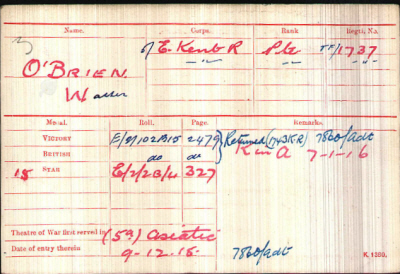 Name. Corps. Rank Regtl. No.
E. Kent R Pte TF/1737
O'BRIEN.
Walter
Medal. Roll. Page. Remarks.
VICTORY E/2/102B15 2479 Returned (1743KR) 7860/adt
BRITISH do do K in A 7-1-16
15 STAR E/2/2B/4 327
Theatre of War first served in (5a) Asiatic
Date of entry therein 9-12-15. 7860/adt
K. 1380.